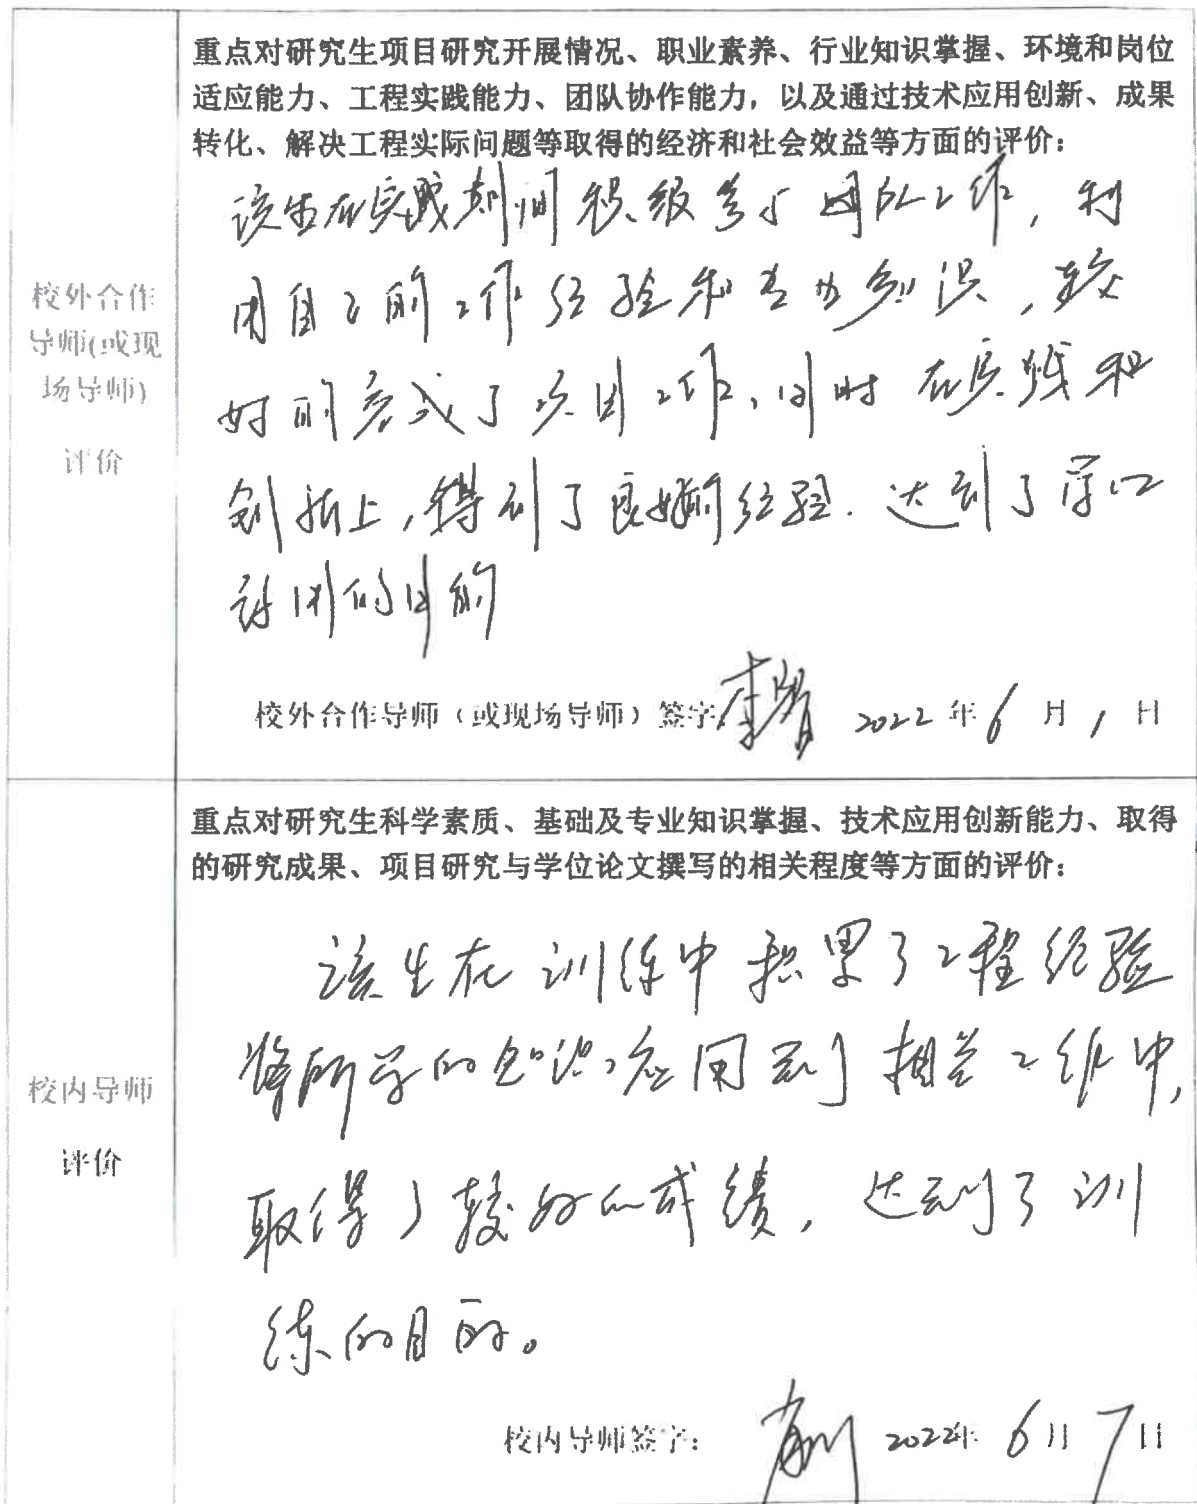 重点对研究生项目研究开展情况、职业素养、行业知识掌握、环境和岗位
适应能力、工程实践能力、团队协作能力，以及通过技术应用创新、成果
转化、解决工程实际问题等取得的经济和社会效益等方面的评价：
校外合作
导师(或现
场导师)
评价
该生在实践期间积极参与团队工作，利
用自己的工作经验和专业知识，较
好的完成了项目工作，同时在实践和
创新上，得到了良好的经验．达到了
的目的
校外合作导师（或现场导师）签字 2022年6月1日
重点对研究生科学素质、基础及专业知识掌握、技术应用创新能力、取得
的研究成果、项目研究与学位论文撰写的相关程度等方面的评价：
校内导师
评价
该生在训练中积累了工程经验
将所学的知识应用到相关工作中，
取得了较好的成绩，达到了训
练的目的。
校内导师签字： 2022年6月7日